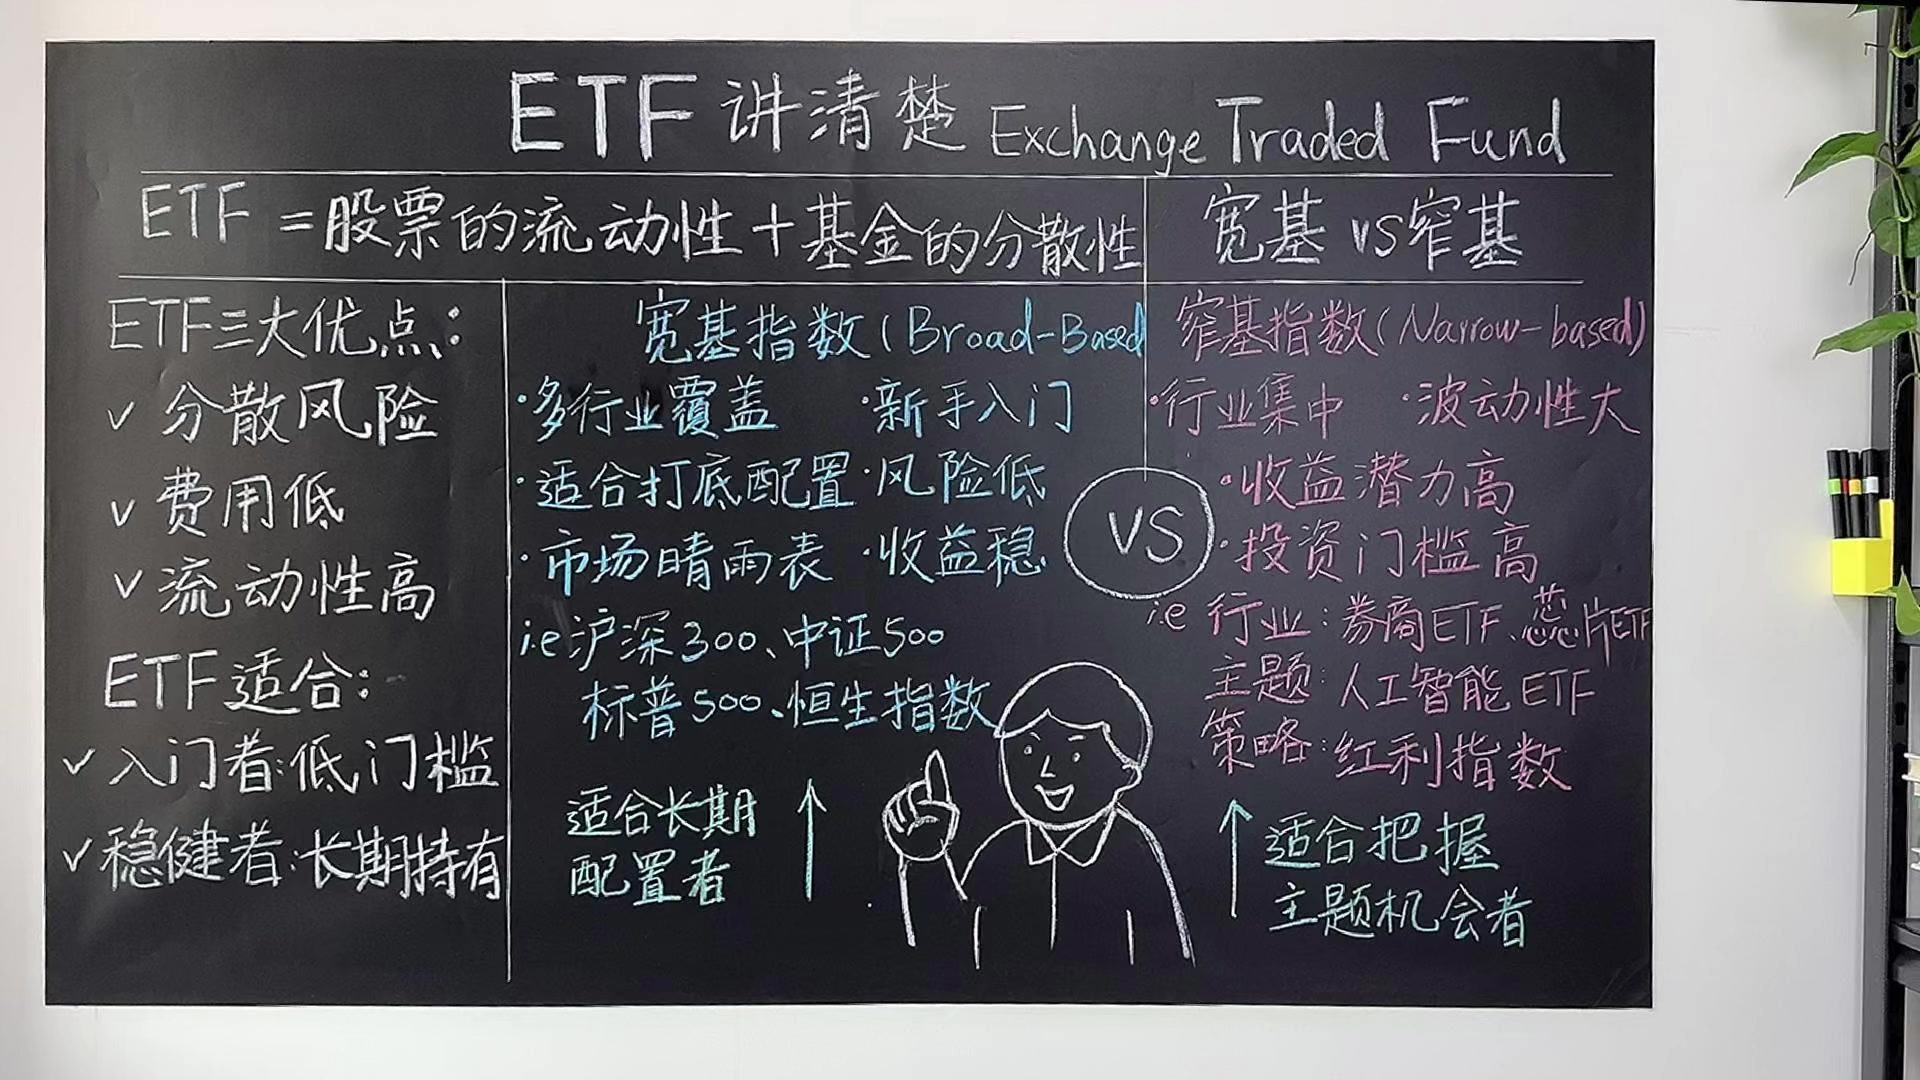 ETF 讲清楚 Exchange Traded Fund
ETF = 股票的流动性 + 基金的分散性
宽基 VS 窄基
ETF三大优点：
✓ 分散风险
✓ 费用低
✓ 流动性高
ETF适合：
✓ 入门者：低门槛
✓ 稳健者：长期持有
宽基指数 (Broad-Based
·多行业覆盖 ·新手入门
·适合打底配置 ·风险低
·市场晴雨表 ·收益稳
i.e 沪深300、中证500
标普500、恒生指数
适合长期
配置者
VS
窄基指数 (Narrow-based)
·行业集中 ·波动性大
·收益潜力高
·投资门槛高
i.e 行业：券商ETF、芯片ETF
主题：人工智能ETF
策略：红利指数
适合把握
主题机会者